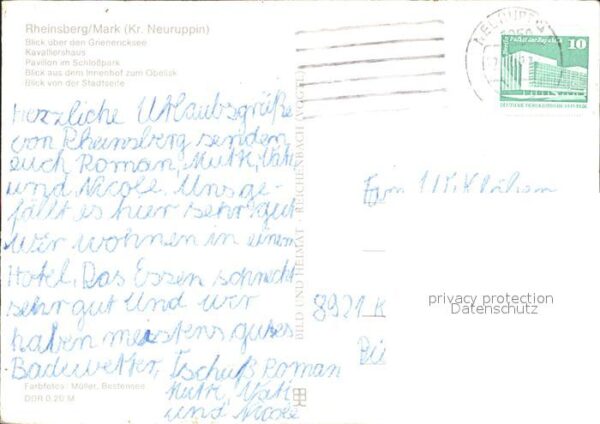 Rheinsberg/Mark (Kr. Neuruppin)
Blick über den Grienericksee
Kavaliershaus
Pavillon im Schloßpark
Blick aus dem Innenhof zum Obelisk
Blick von der Stadtseite
Herzliche Urlaubsgrüße
von Rheinsberg senden
euch Roman, Mutti, Vati
und Nicole. Uns ge-
fällt es hier sehr gut
wir wohnen in einem
Hotel. Das Essen schmeckt
sehr gut und wir
haben meistens gutes
Badewetter. Tschüß Roman
Mutti, Vati
und Nicole
Farbfotos: Müller, Bestensee
DDR 0,20 M
BILD UND HEIMAT REICHENBACH (VOGTL)
10
DEUTSCHE DEMOKRATISCHE REPUBLIK
8921 K
privacy protection
Datenschutz